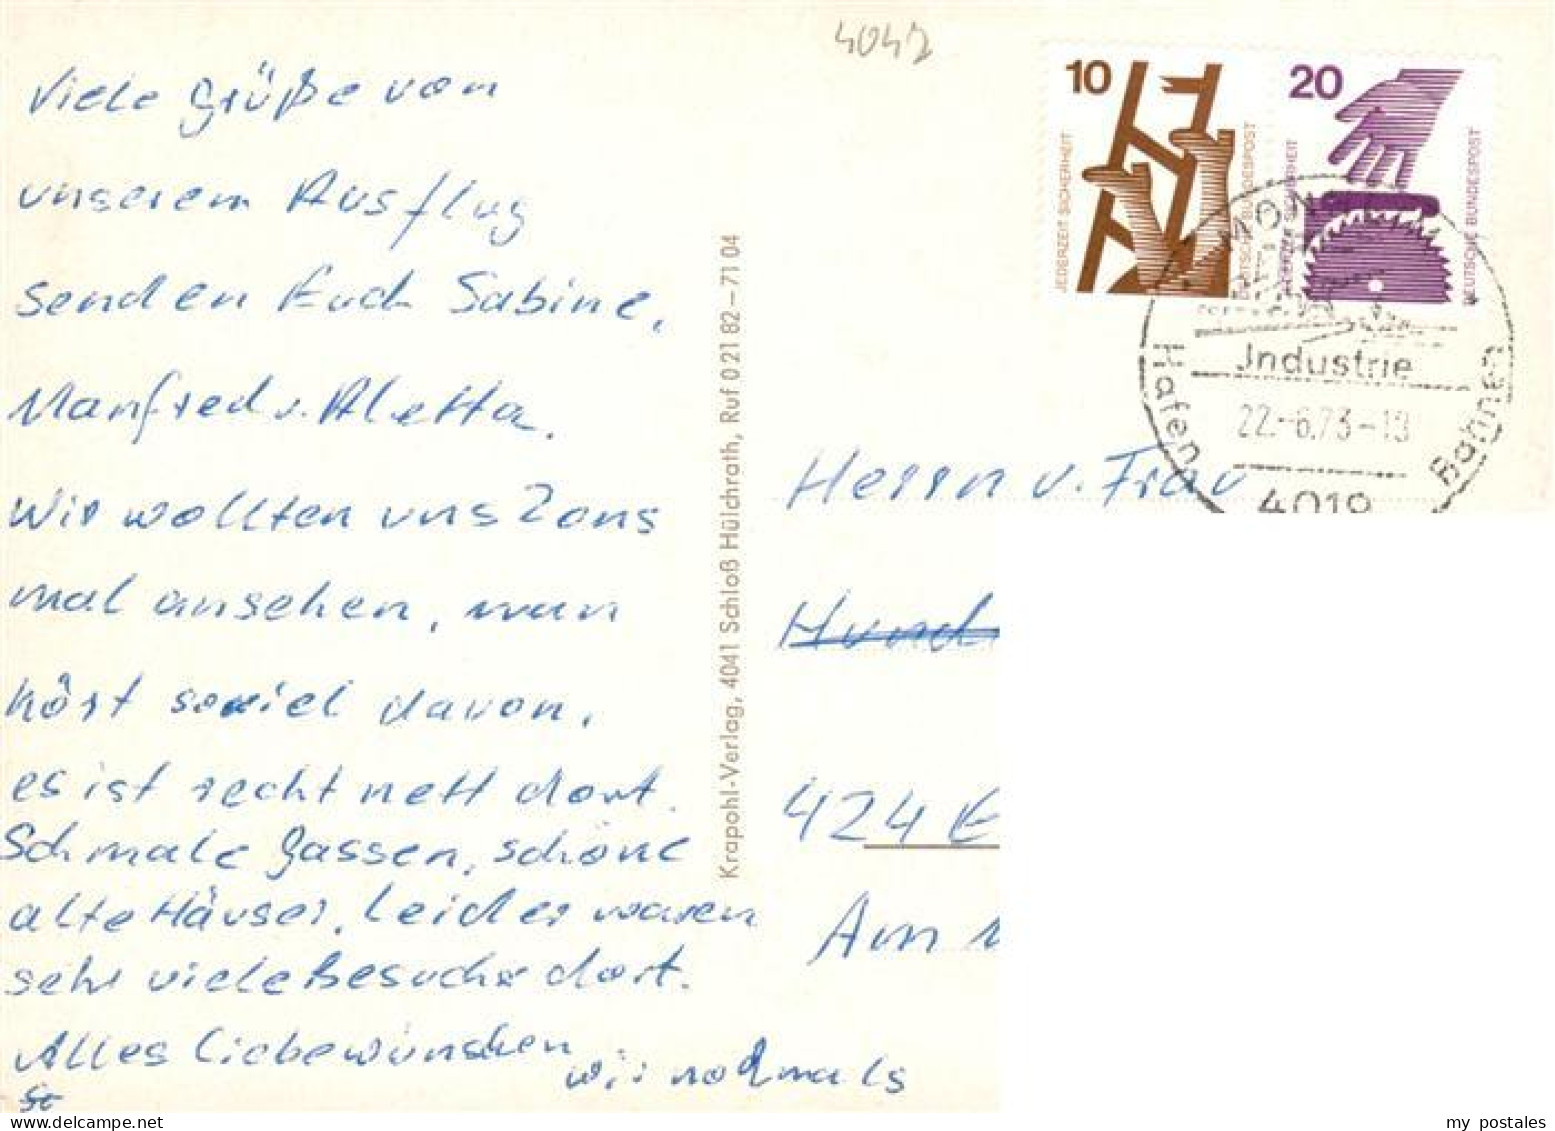 4042
Viele Grüße von
unserem Ausflug
senden Euch Sabine,
Manfred u. Aletta.
Wir wollten uns Zons
mal ansehen, man
hört soviel davon,
es ist recht nett dort.
Schmale Gassen, schöne
alte Häuser. Leider waren
sehr viele Besucher dort.
Alles Liebe wünschen
wir nochmals
Krapohl-Verlag, 4041 Schloß Hülchrath, Ruf 0 21 82 – 71 04
10
JEDERZEIT SICHERHEIT
DEUTSCHE BUNDESPOST
20
DEUTSCHE BUNDESPOST
Industrie
Hafen
Bahnen
22.-6.73-13
4019
Herrn u. Frau
Hund
424 E
Am
my postales